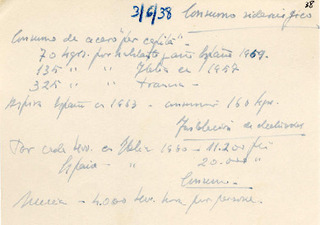 38
3/6/38 Consumo siderúrgico
Consumo de acero "per cápita"
70 kgrs. por habitante y año España 1959.
135 " " Italia en 1957
325 " " Francia -
Aspira España en 1963 - consumir 160 kgrs.
Instalación de electricidad
Por cada en Italia 1960 - 11.200
España - " 20.000 "
Consumo -
Suecia - 4.000 por persona.